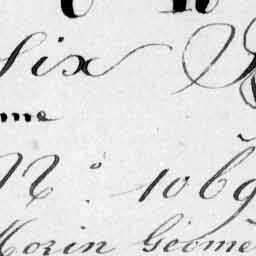 Six
me
N° 1069
Morin Géomè